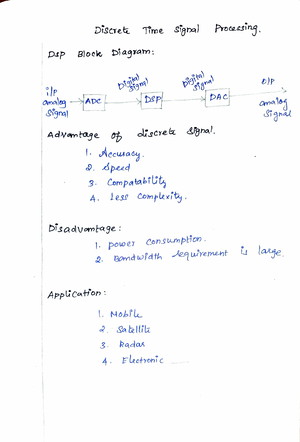 Discrete Time Signal Processing.
DSP Block Diagram:
i/p analog signal
ADC
Digital signal
DSP
Digital signal
DAC
O/P analog signal
Advantage of discrete signal.
1. Accuracy.
2. Speed
3. Compatability
4. Less Complexity.
Disadvantage:
1. power consumption.
2. Bandwidth requirement is large.
Application:
1. Mobile
2. Satellite
3. Radar
4. Electronic ......